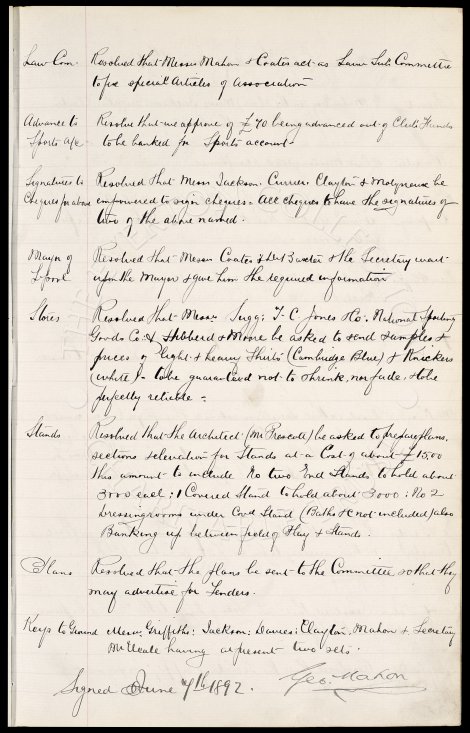 Law Com. Resolved that Messrs Mahon & Coates act as Law Sub Committee
to fix special Articles of Association
Advance to Resolve that we approve of £70 being advanced out of Club's Funds
Sports a/c to be banked for Sports account
Signatures to Resolved that Messrs Jackson, Currier, Clayton & Molyneux be
Cheques for above empowered to sign cheques. All cheques to have the signatures of
two of the above named.
Mayor of Resolved that Messrs Coates & the Secretary wait
L'pool upon the Mayor & give him the required information
Stores Resolved that Messrs Sugg; T. C. Jones & Co; National Sporting
Goods Co & Hibberd & Moore be asked to send samples &
prices of Light & heavy Shirts (Cambridge Blue) & Knickers
(white) - to be guaranteed not to shrink, nor fade, & be
perfectly reliable =
Stands Resolved that the Architect (Mr Prescott) be asked to prepare plans,
sections & elevation for Stands at a Cost of about £1500
this amount to include No two End Stands to hold about
3000 each; 1 Covered Stand to hold about 3000; No 2
Dressing rooms under Covd Stand (Baths &c not included) also
Banking up between field of Play & Stands.
Plans Resolved that the plans be sent to the Committee so that they
may advertise for Tenders.
Keys to Ground Messrs Griffiths; Jackson; Davies; Clayton, Mahon & Secretary
Mr Neale having at present two sets.
Signed June 7th 1892. Geo. Mahon